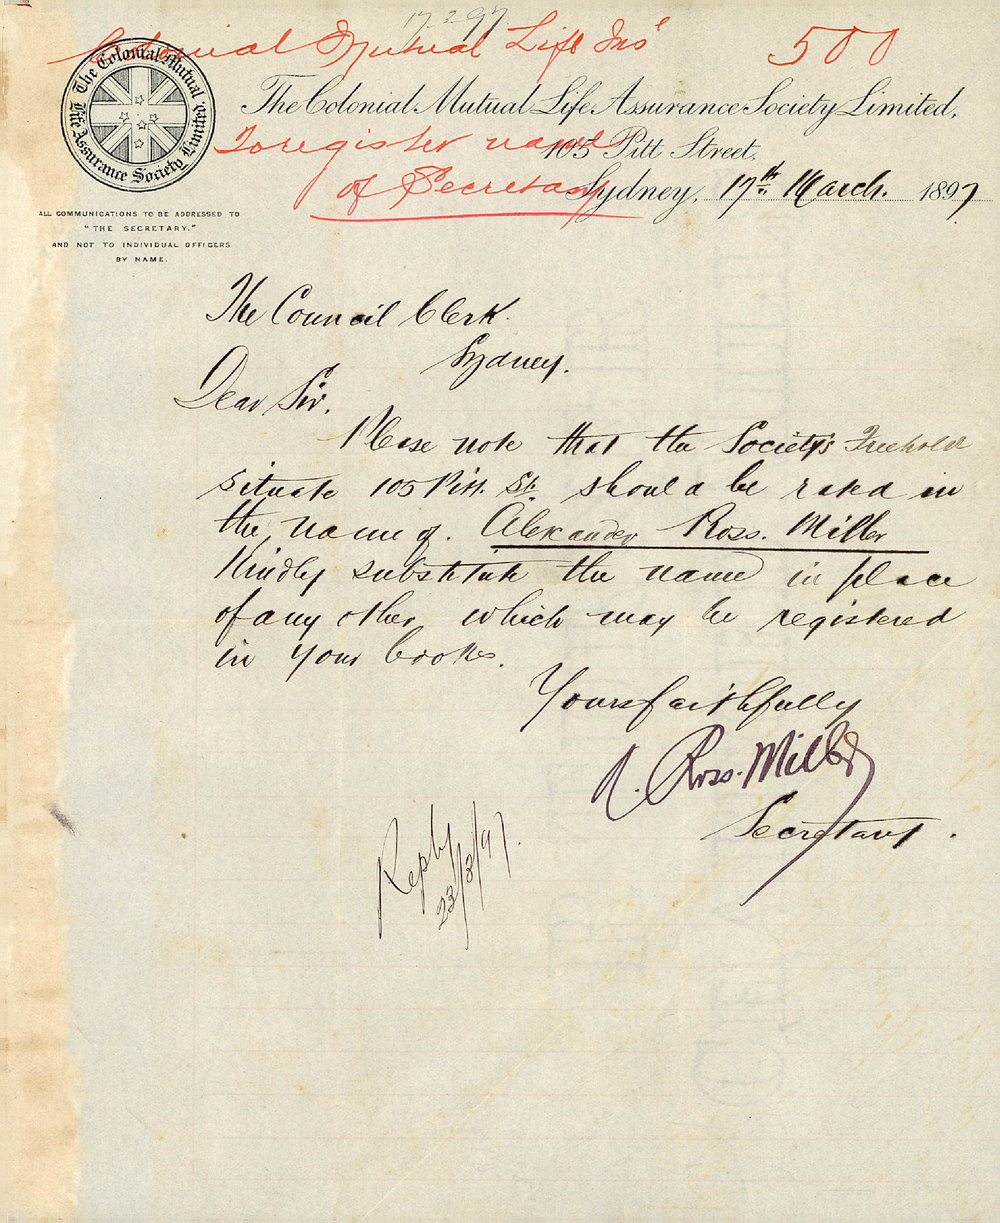 17.3.97.
Colonial Mutual Life Insᵉ 500
The Colonial Mutual Life Assurance Society Limited.
The Colonial Mutual Life Assurance Society Limited,
To register name
105 Pitt Street,
of Secretary
Sydney, 17th March. 1897
ALL COMMUNICATIONS TO BE ADDRESSED TO
"THE SECRETARY."
AND NOT TO INDIVIDUAL OFFICERS
BY NAME.
The Council Clerk.
Sydney.
Dear Sir,
Please note that the Society's Freehold
situate 105 Pitt. St. should be rated in
the name of. Alexander Ross. Miller
Kindly substitute the name in place
of any other which may be registered
in your books.
Yours faithfully
A. Ross. Miller
Secretary.
Reply
23/3/97.